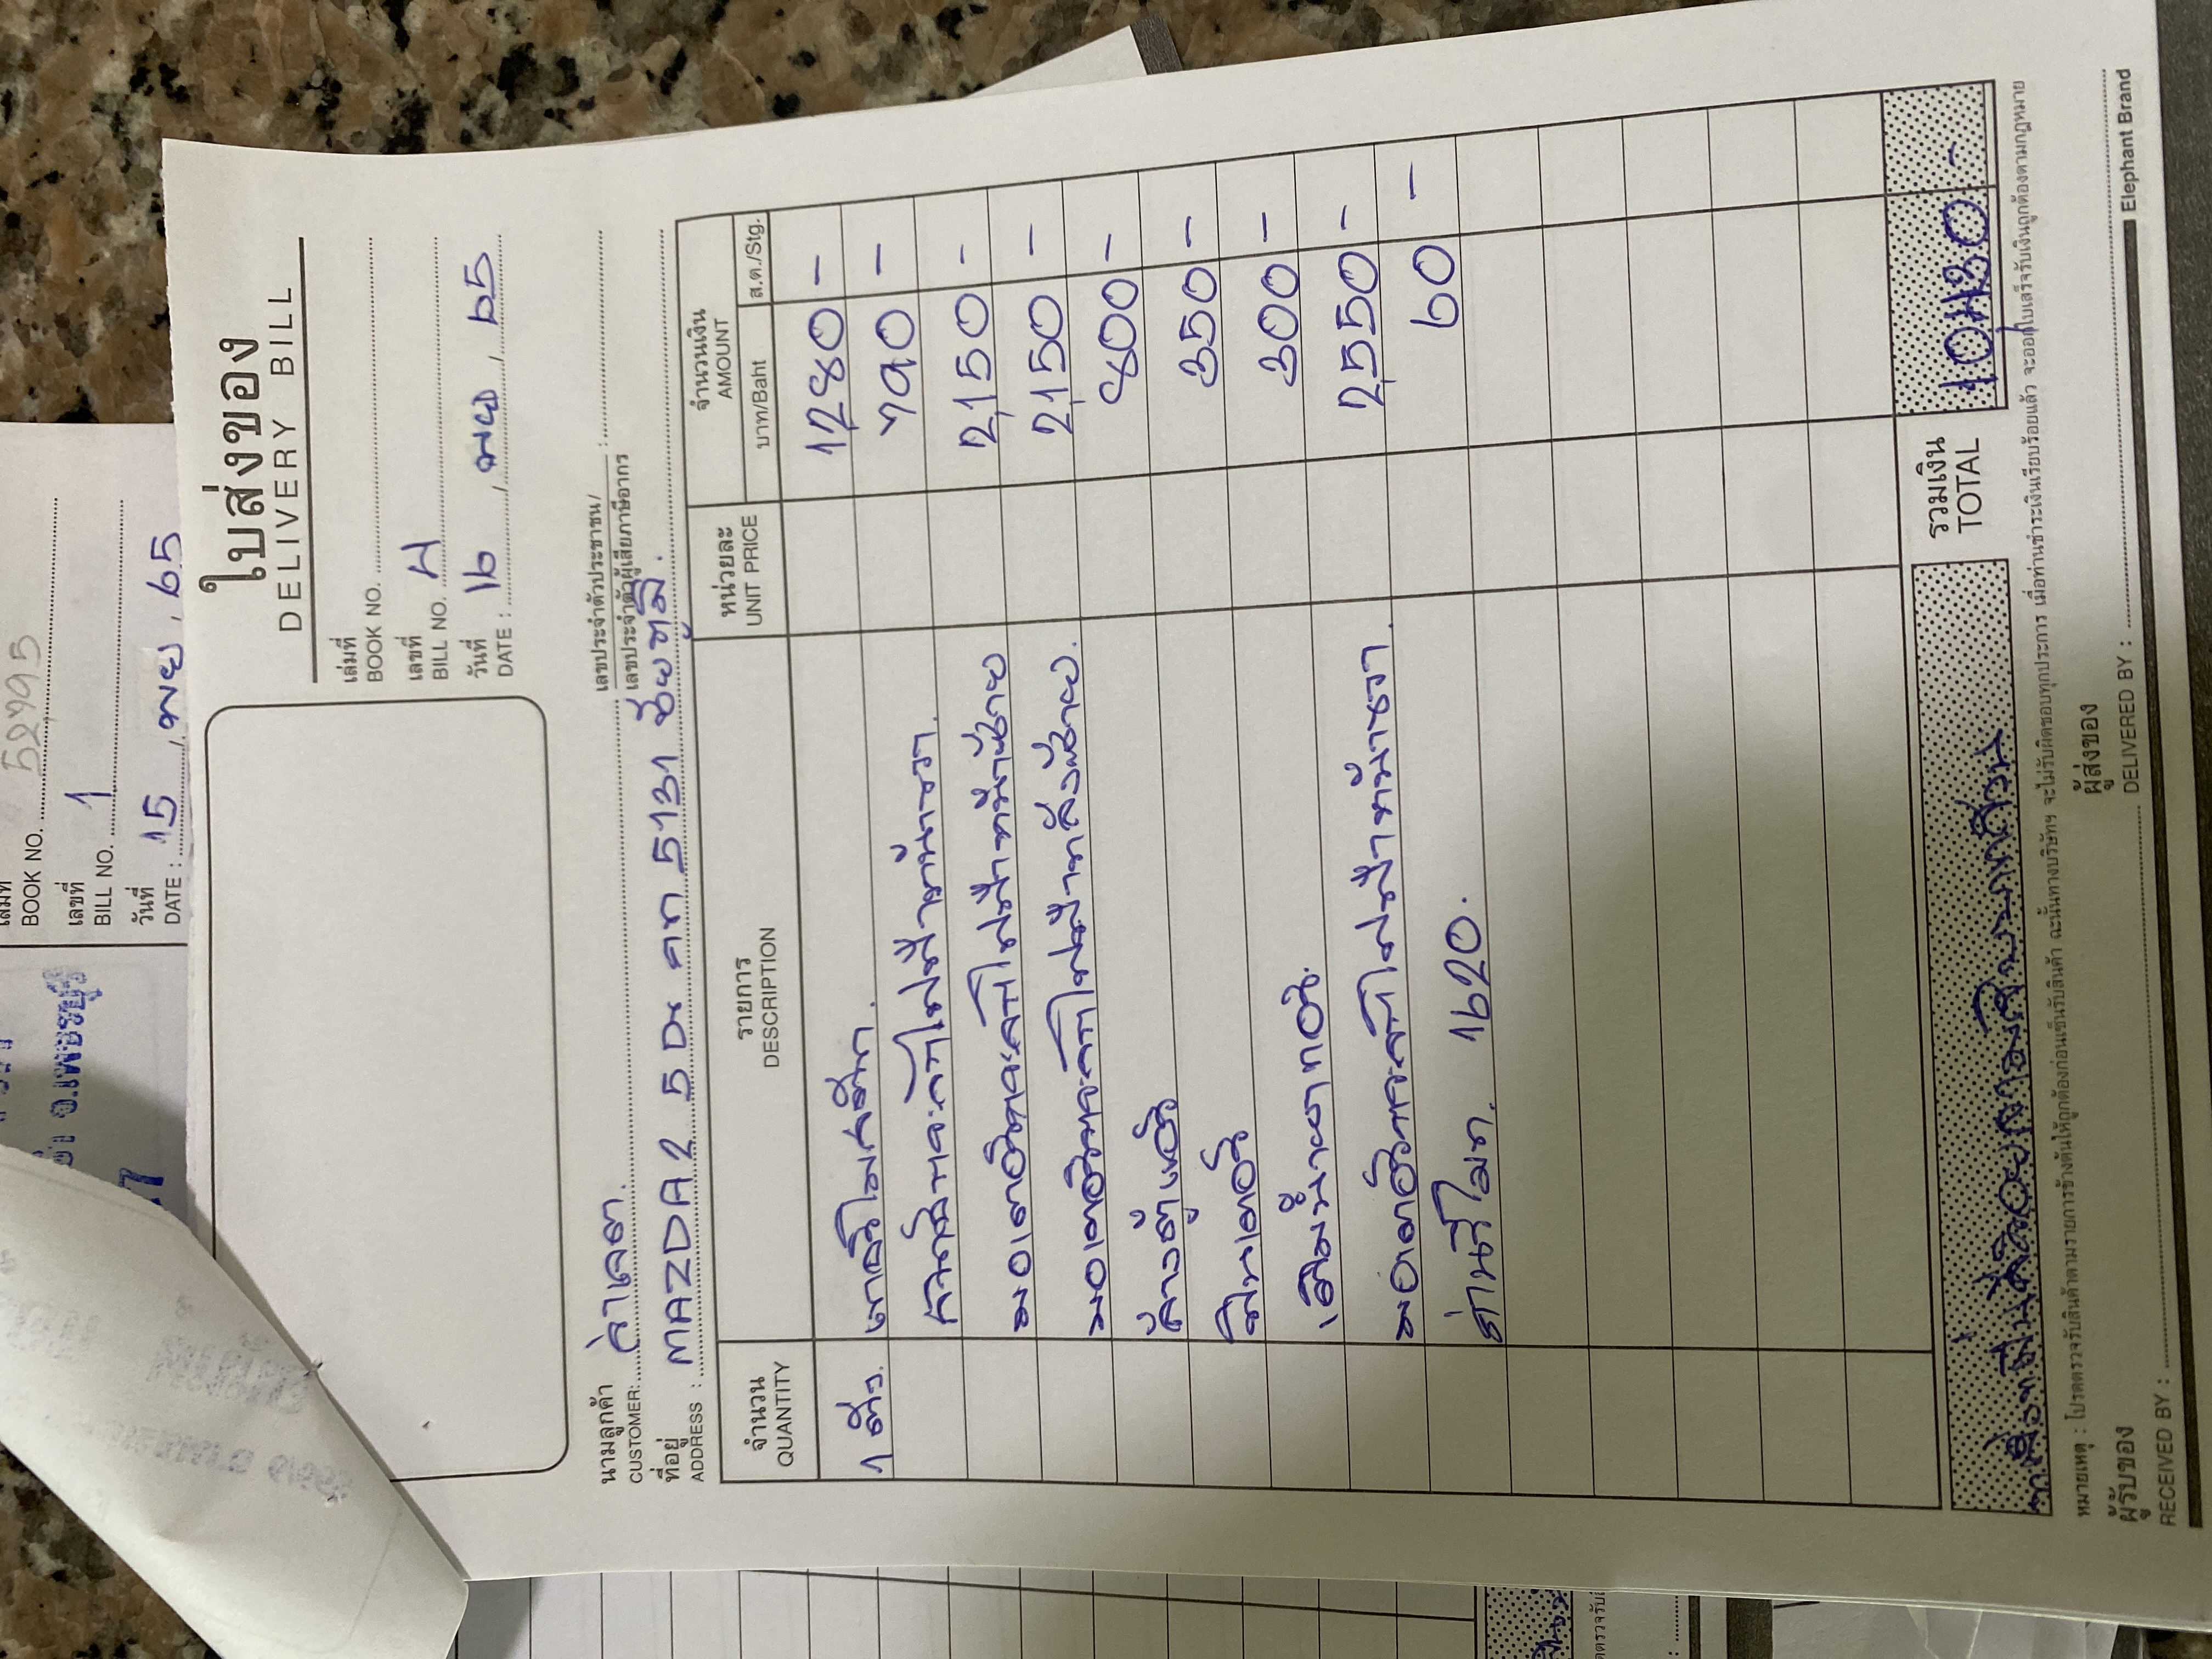 ใบส่งของ
DELIVERY BILL
เล่มที่
BOOK NO.
เลขที่
BILL NO. 4
วันที่
DATE : 16 , พย , 65
นามลูกค้า
CUSTOMER:
เลขประจำตัวประชาชน/
เลขประจำตัวผู้เสียภาษีอากร :
ที่อยู่
ADDRESS : MAZDA 2 5D กท 5131 ชัยภูมิ.
จำนวน
QUANTITY
รายการ
DESCRIPTION
หน่วยละ
UNIT PRICE
จำนวนเงิน
AMOUNT
บาท/Baht
ส.ต./Stg.
1 ตัว. 1280 -
790 -
มอเตอร์กระจกไฟฟ้าหน้าซ้าย 2150 -
มอเตอร์กระจกไฟฟ้าหลังซ้าย. 2150 -
ล้างตู้แอร์ 800 -
350 -
เติมน้ำยาแอร์. 300 -
มอเตอร์กระจกไฟฟ้าหน้าขวา. 2550 -
1620. 60 -
รวมเงิน
TOTAL
10430 -
หมายเหตุ : โปรดตรวจรับสินค้าตามรายการข้างต้นให้ถูกต้องก่อนเซ็นรับสินค้า ฉะนั้นทางบริษัทฯ จะไม่รับผิดชอบทุกประการ เมื่อท่านชำระเงินเรียบร้อยแล้ว จะออกใบเสร็จรับเงินถูกต้องตามกฎหมาย
ผู้รับของ
RECEIVED BY :
ผู้ส่งของ
DELIVERED BY :
Elephant Brand
เล่มที่
BOOK NO. 52795
เลขที่
BILL NO. 1
วันที่
DATE : 15 , พย , 65
จ.เพชรบุรี